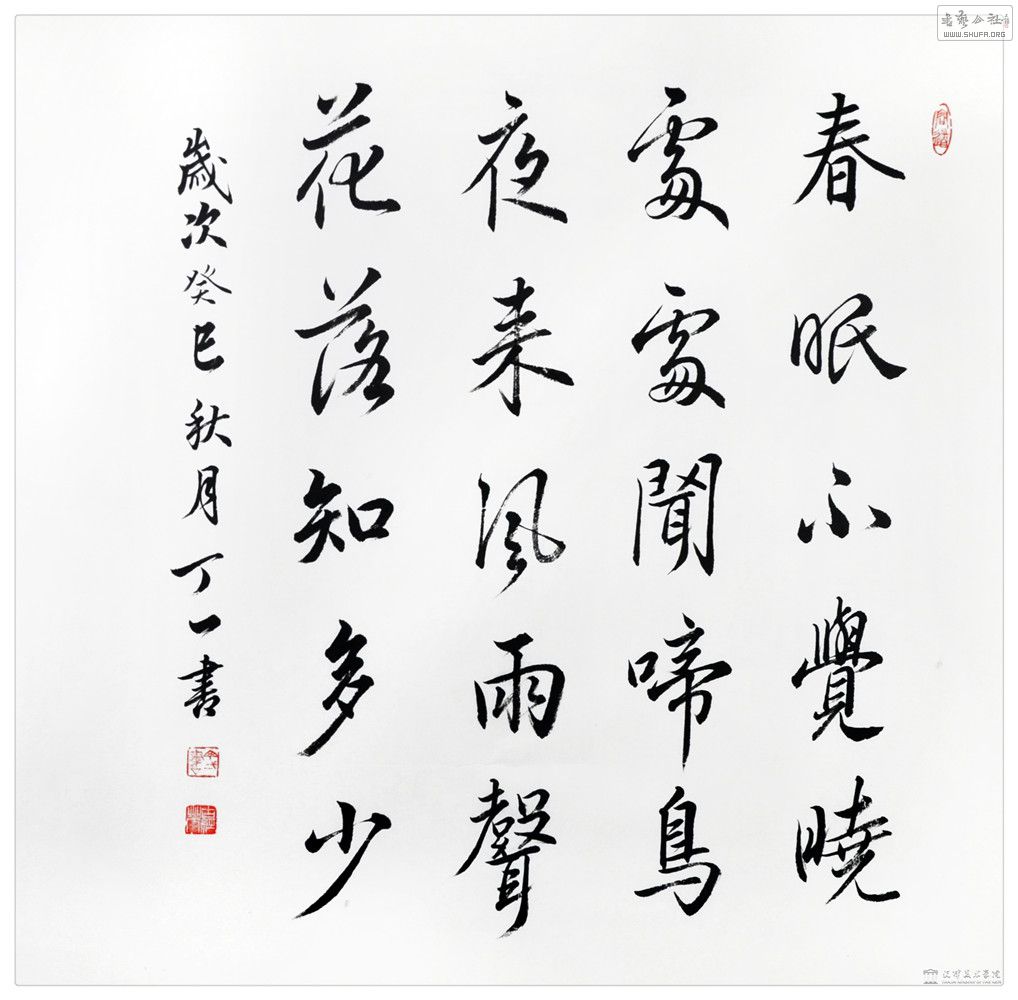 春眠不覺曉
處處聞啼鳥
夜来風雨聲
花落知多少
歲次癸巳秋月丁一書
書藝公社
WWW.SHUFA.ORG